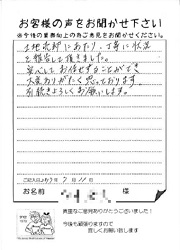 お客様の声をお聞かせ下さい
※今後の業務向上の為ご意見をお聞かせください。
土地売却にあたり、丁寧に状況
を報告して頂きました。
安心してお任せすることができ
大変ありがたく思っております。
今後ともよろしくお願いします。
お名前 様
貴重なご意見ありがとうございました！
今後も頑張りますので
宜しくお願い致します